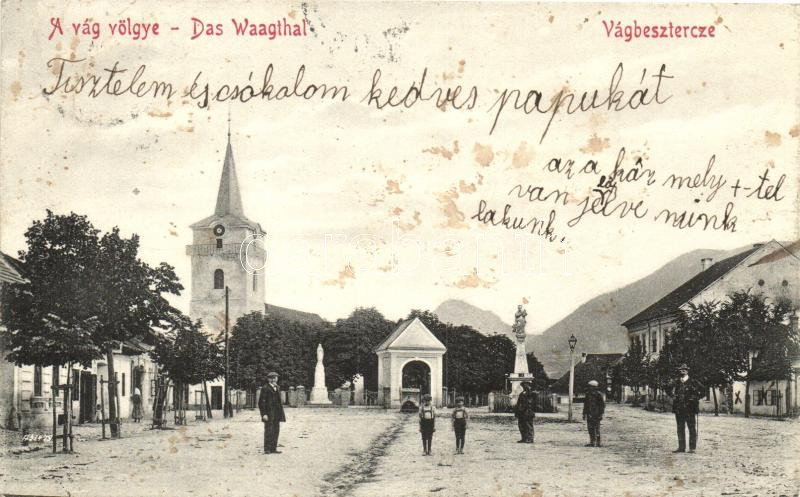 A vág völgye - Das Waagthal
Vágbesztercze
Tisztelem és csókolom kedves papukát
az a ház mely +-tel
van jelve mink
lakunk.